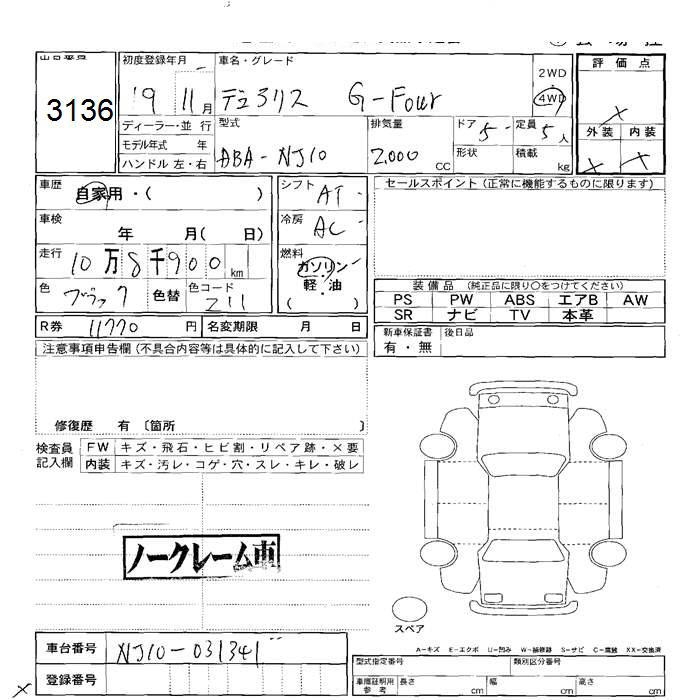 出品番号
3136
初度登録年月
19
11月
車名・グレード
デュアリス G-Four
2WD
4WD
評価点
×
外装
内装
×
×
ディーラー・並行
モデル年式 年
ハンドル 左・右
型式
ABA-NJ10
排気量
2.000
CC
ドア
5
形状
定員
5人
積載
kg
車歴
自家用・( )
シフト
AT
セールスポイント (正常に機能するものに限ります)
車検
年 月( 日)
冷房
AC
走行
10万8千900km
燃料
ガソリン
軽・油
( )
色
色替
色コード
Z11
装備品 (純正品に限り○をつけてください)
PS PW ABS エアB AW
SR ナビ TV 本革
R券 11770円
名変期限 月 日
新車保証書
有・無
後日品
注意事項申告欄 (不具合内容等は具体的に記入して下さい)
修復歴 有 〔箇所 〕
検査員
記入欄
FW キズ・飛石・ヒビ割・リペア跡・×要
内装 キズ・汚レ・コゲ・穴・スレ・キレ・破レ
ノークレーム車
スペア
A-キズ E-エクボ U-凹み W-補修跡 S-サビ C-腐蝕 XX-交換済
車台番号
NJ10-031341
登録番号
型式指定番号
類別区分番号
車庫証明用
参考
長さ cm
幅 cm
高さ cm
×